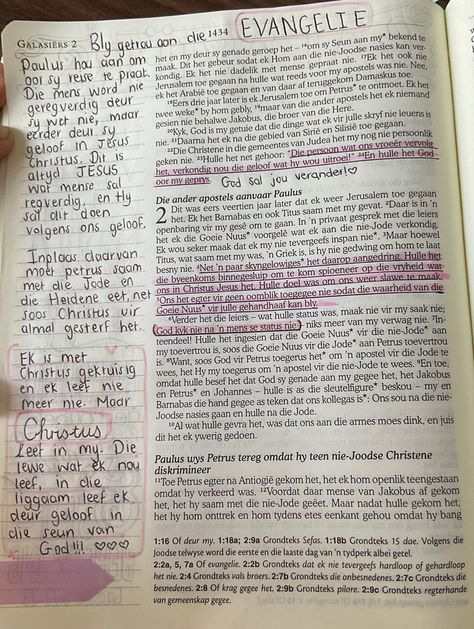 GALASIËRS 2
Bly getrou aan die
1434
EVANGELIE
Paulus hou aan om
oor sy reise te praat.
Die mens word nie
geregverdig deur
sy wet nie, maar
eerder deur sy
geloof in Jesus
Christus. Dit is
altyd JESUS
wat mense sal
regverdig, en Hy
sal dit doen
volgens ons geloof.
Inplaas daarvan
moet petrus saam
met die Jode en
die Heidene eet, net
soos Christus vir
almal gesterf het.
EK is met
Christus gekruisig
en ek leef nie
meer nie. Maar
Christus
Leef in my. Die
lewe wat ek nou
leef, in die
liggaam leef ek
deur geloof in
die seun van
God!!! ♡♡♡
het en my deur sy genade geroep het – ¹⁶om sy Seun aan my* bekend te
maak. Dit het gebeur sodat ek Hom aan die nie-Joodse nasies kan ver-
kondig. Ek het nie dadelik met mense gepraat nie. ¹⁷Ek het ook nie
Jerusalem toe gegaan na hulle wat reeds voor my apostels was nie. Nee,
ek het Arabië toe gegaan en van daar af teruggekom Damaskus toe.
¹⁸Eers drie jaar later is ek Jerusalem toe om Petrus* te ontmoet. Ek het
twee weke* by hom gebly. ¹⁹maar van die ander apostels het ek niemand
gesien nie behalwe Jakobus, die broer van die Here.
²⁰Kyk, God is my getuie dat die dinge wat ek vir julle skryf nie leuens is
nie. ²¹Daarna het ek na die gebied van Sirië en Silisië toe gegaan.
²²Die Christene in die gemeentes van Judea het my nog nie persoonlik
geken nie. ²³Hulle het net gehoor: "Die persoon wat ons vroeër vervolg
het, verkondig nou die geloof wat hy wou uitroei!" ²⁴En hulle het God
oor my geprys.
God sal jou verander!♡
Die ander apostels aanvaar Paulus
2 Dit was eers veertien jaar later dat ek weer Jerusalem toe gegaan
het. Ek het Barnabas en ook Titus saam met my gevat. ²Daar is in 'n
openbaring vir my gesê om te gaan. In 'n privaat gesprek met die leiers
het ek die Goeie Nuus* voorgelê wat ek aan die nie-Jode verkondig.
Ek wou seker maak dat ek my nie tevergeefs inspan nie*. ³Maar hoewel
Titus, wat saam met my was, 'n Griek is, is hy nie gedwing om hom te laat
besny nie. ⁴Net 'n paar skyngelowiges* het daarop aangedring. Hulle het
die byeenkoms binnegesluip om te kom spioeneer op die vryheid wat
ons in Christus Jesus het. Hulle doel was om ons weer slawe te maak.
⁵Ons het egter vir geen oomblik toegegee nie sodat die waarheid van die
Goeie Nuus* vir julle gehandhaaf kan bly.
⁶Verder het die leiers – wat hulle status was, maak nie vir my saak nie;
God kyk nie na 'n mens se status nie – niks meer van my verwag nie. ⁷In-
teendeel! Hulle het ingesien dat die Goeie Nuus* vir die nie-Jode* aan
my toevertrou is, soos die Goeie Nuus vir die Jode* aan Petrus toevertrou
is. ⁸Want, soos God vir Petrus toegerus het* om 'n apostel vir die Jode te
wees, het Hy my toegerus om 'n apostel vir die nie-Jode te wees. ⁹En toe,
omdat hulle besef het dat God sy genade aan my gegee het, het Jakobus
en Petrus* en Johannes – hulle is as die sleutelfigure* beskou – my en
Barnabas die hand gegee as teken dat ons kollegas is*: Ons sou na die nie-
Joodse nasies gaan en hulle na die Jode.
¹⁰Al wat hulle gevra het, was dat ons aan die armes moes dink, en juis
dit het ek ywerig gedoen.
Paulus wys Petrus tereg omdat hy teen nie-Joodse Christene
diskrimineer
¹¹Toe Petrus egter na Antiogië gekom het, het ek hom openlik teengestaan
omdat hy verkeerd was. ¹²Voordat daar mense van Jakobus af gekom
het, het hy saam met die nie-Jode geëet. Maar nadat hulle gekom het,
het hy hom onttrek en hom tydens etes eenkant gehou omdat hy bang
1:16 Of deur my. 1:18a; 2:9a Grondteks Sefas. 1:18b Grondteks 15 dae. Volgens die
Joodse telwyse word die eerste en die laaste dag van 'n tydperk albei getel.
2:2a, 5, 7a Of evangelie. 2:2b Grondteks dat ek nie tevergeefs hardloop of gehardloop
het nie. 2:4 Grondteks vals broers. 2:7b Grondteks die onbesnedenes. 2:7c Grondteks die
besnedenes. 2:8 Of krag gegee het. 2:9b Grondteks pilare. 2:9c Grondteks regterhande
van gemeenskap gegee.